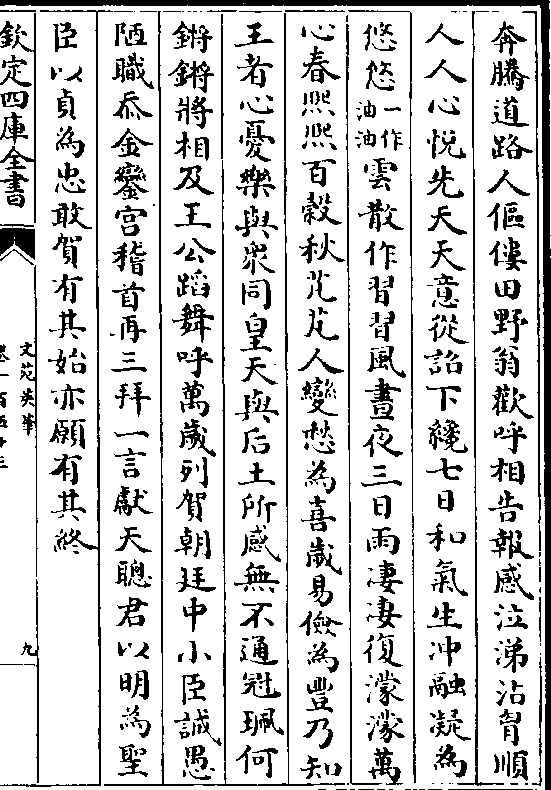 奔騰道路人傴僂田野翁歡呼相告報感泣涕沾胷順
人人心悅先天天意從詔下纔七日和氣生冲融凝為
悠悠一作油油雲散作習習風晝夜三日雨凄凄復濛濛萬
心春熙熙百糓秋芃芃人變愁為喜歲易儉為豐乃知
王者心憂樂與衆同皇天與后土所感無不通冠珮何
鏘鏘將相及王公蹈舞呼萬歲列賀朝廷中小臣誠愚
陋職忝金鑾宫稽首再三拜一言獻天聰君以明為聖
臣以貞為忠敢賀有其始亦願有其終
欽定四庫全書
文苑英華
卷一百五十三
九